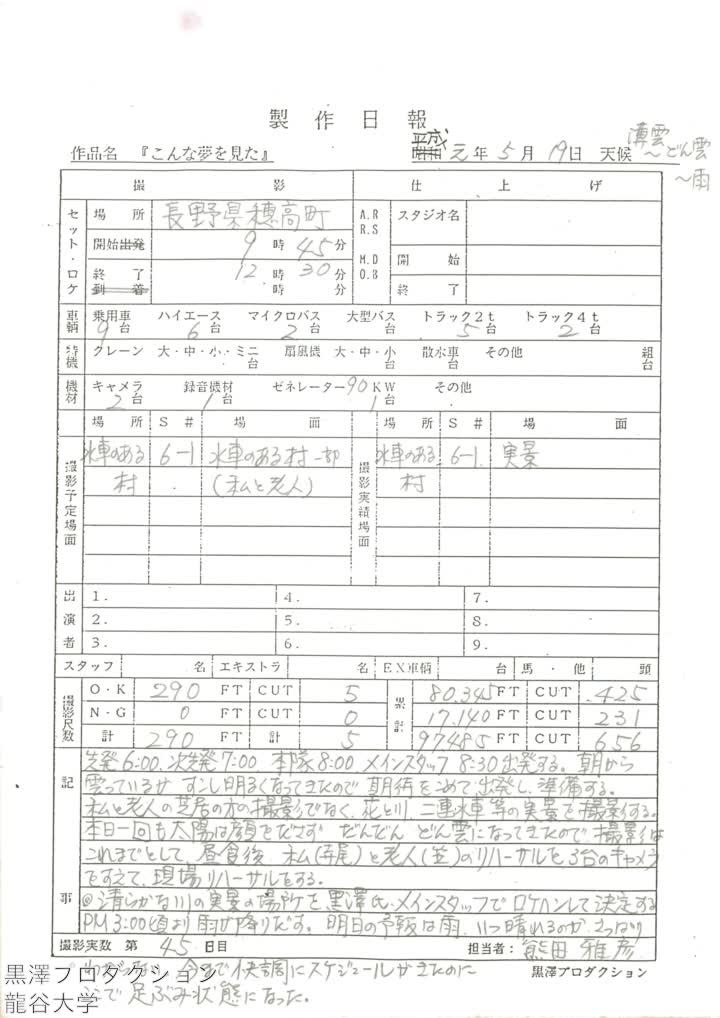 製作日報
作品名 『こんな夢を見た』 平成 元年 5月 19日 天候 薄雲
～どん雲
～雨
撮影 仕上げ
セット・ロケ 場所 長野県穂高町 A.R R.S スタジオ名
開始出発 9時 45分 M.D O.B 開始
終了 12時 30分 終了
到着 時 分
車輌 乗用車 9台 ハイエース 6台 マイクロバス 2台 大型バス 台 トラック2t 5台 トラック4t 2台
特機 クレーン 大・中・小・ミニ 台 扇風機 大・中・小 台 散水車 台 その他 組 台
機材 キャメラ 2台 録音機材 1台 ゼネレーター 90KW 1台 その他
撮影予定場面 場所 S# 場面 撮影実績場面 場所 S# 場面
水車のある 6-1 水車のある村 一部 水車のある 6-1 実景
村 (私と老人) 村
出演者 1. 4. 7.
2. 5. 8.
3. 6. 9.
スタッフ 名 エキストラ 名 EX車輌 台 馬・他 頭
撮影尺数 O・K 290 FT CUT 5 累計 80,345 FT CUT 425
N・G 0 FT CUT 0 17,140 FT CUT 231
計 290 FT 計 5 97,485 FT CUT 656
記事 先発6:00、次先発7:00 本隊8:00 メインスタッフ 8:30出発する。朝から
雲っているが すこし明るくなってきたので 期待をこめて出発し、準備する。
私と老人の芝居の方の撮影でなく、花と川、二連水車等の実景を撮影する。
本日一回も太陽は顔をださず だんだん どん雲になってきたので 撮影は
これまでとして、昼食後、私(寺尾)と老人(笠)のリハーサルを3台のキャメラ
をすえて、現場リハーサルをする。
◎清らかな川の実景の場所を黒澤氏、メインスタッフでロケハンして決定する
PM3:00頃より雨が降りだす。明日の予報は雨、いつ晴れるのか、さっぱり
撮影実数 第 45 日目 担当者: 熊田雅彦
わからない 今まで快調にスケジュールがきたのに 黒澤プロダクション
ここで足ぶみ状態になった。
黒澤プロダクション
龍谷大学